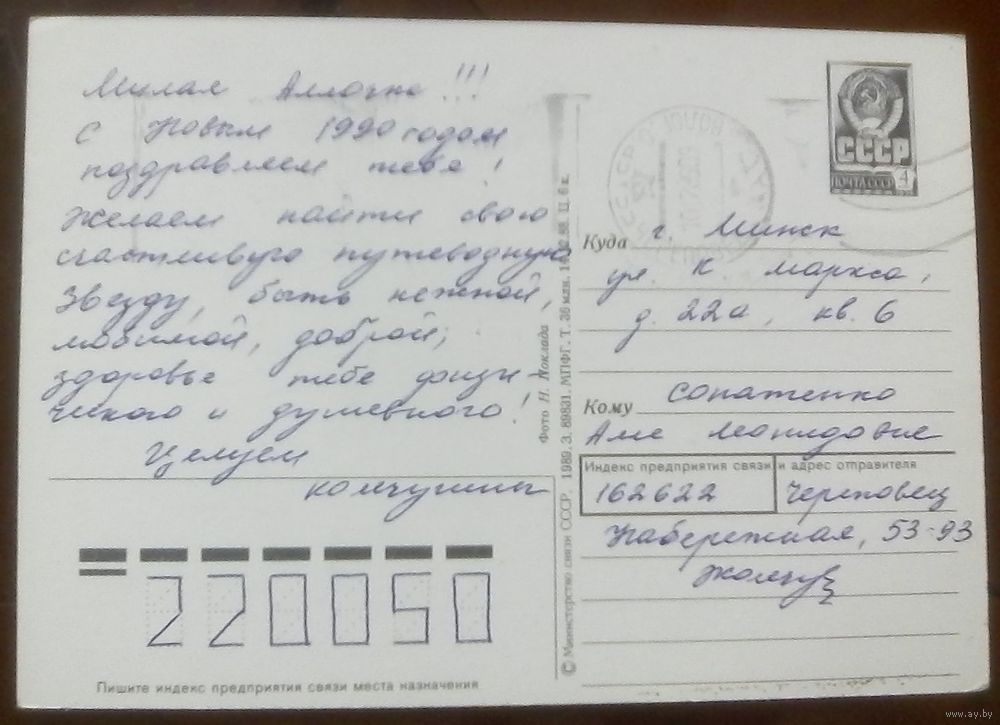 Милая Аллочка!!!
С Новым 1990 годом
поздравляем тебя!
Желаем найти свою
счастливую путеводную
звезду, быть нежной,
любимой, доброй,
здоровье тебе физи-
ческого и душевного!
Целуем
СССР
ПОЧТА СССР 4
Куда г. Минск
ул. К. Маркса,
д. 22а, кв. 6
Кому Сопатенко
Алле
Индекс предприятия связи и адрес отправителя
162622 Череповец
Набережная, 53-93
220050
Пишите индекс предприятия связи места назначения
Фото Н. Поклада
© Министерство связи СССР. 1989. З. 89831. МПФГ. Т. 36 млн. Ц. 6 к.
www.ay.by